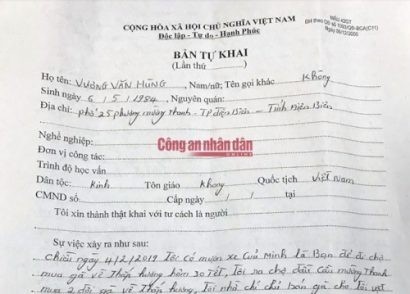 CỘNG HÒA XÃ HỘI CHỦ NGHĨA VIỆT NAM
Độc lập - Tự do - Hạnh Phúc
BẢN TỰ KHAI
(Lần thứ)
Họ tên: Vương Văn Hùng, Nam/nữ: Tên gọi khác Không
Sinh ngày 6/5/1984, Nguyên quán:
Địa chỉ: phố 25 phường mường thanh - TP điện Biên - Tỉnh Điện Biên
Nghề nghiệp:
Công an nhân dân
ONLINE
Đơn vị công tác:
Trình độ học vấn
Dân tộc: Kinh Tôn giáo Không Quốc tịch Việt Nam
CMND số: Cấp ngày / / tại
Tôi xin thành thật khai với tư cách là người
Sự việc xảy ra như sau:
Chiều ngày 4/2/2019 Tôi có mượn xe của Minh là Bạn để đi chợ
mua gà về Thắp hương hôm 30 TẾT, Tôi ra chợ đầu cầu mường Thanh
mua 2 đôi gà về Thắp hương, Tôi nhờ chị chủ bán gà cho Tôi